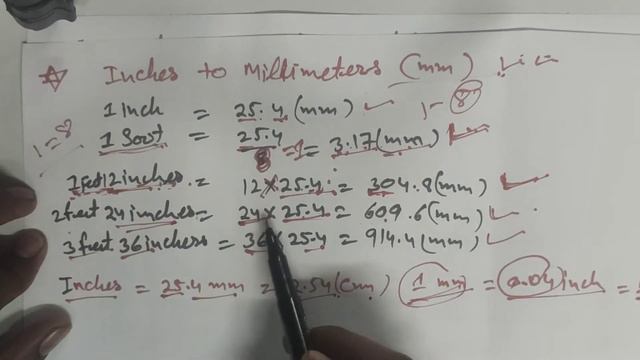 Inches to Millimeters (mm)
1 Inch = 25.4 (mm) 1-8
1-8 1 Soot = 25.4/8 = 3.17 (mm)
1 feet 12 inches = 12 x 25.4 = 304.8 (mm)
2 feet 24 inches = 24 x 25.4 = 609.6 (mm)
3 feet 36 inches = 36 x 25.4 = 914.4 (mm)
Inches = 25.4 mm = 2.54 (cm) 1 mm = 0.04 inch =